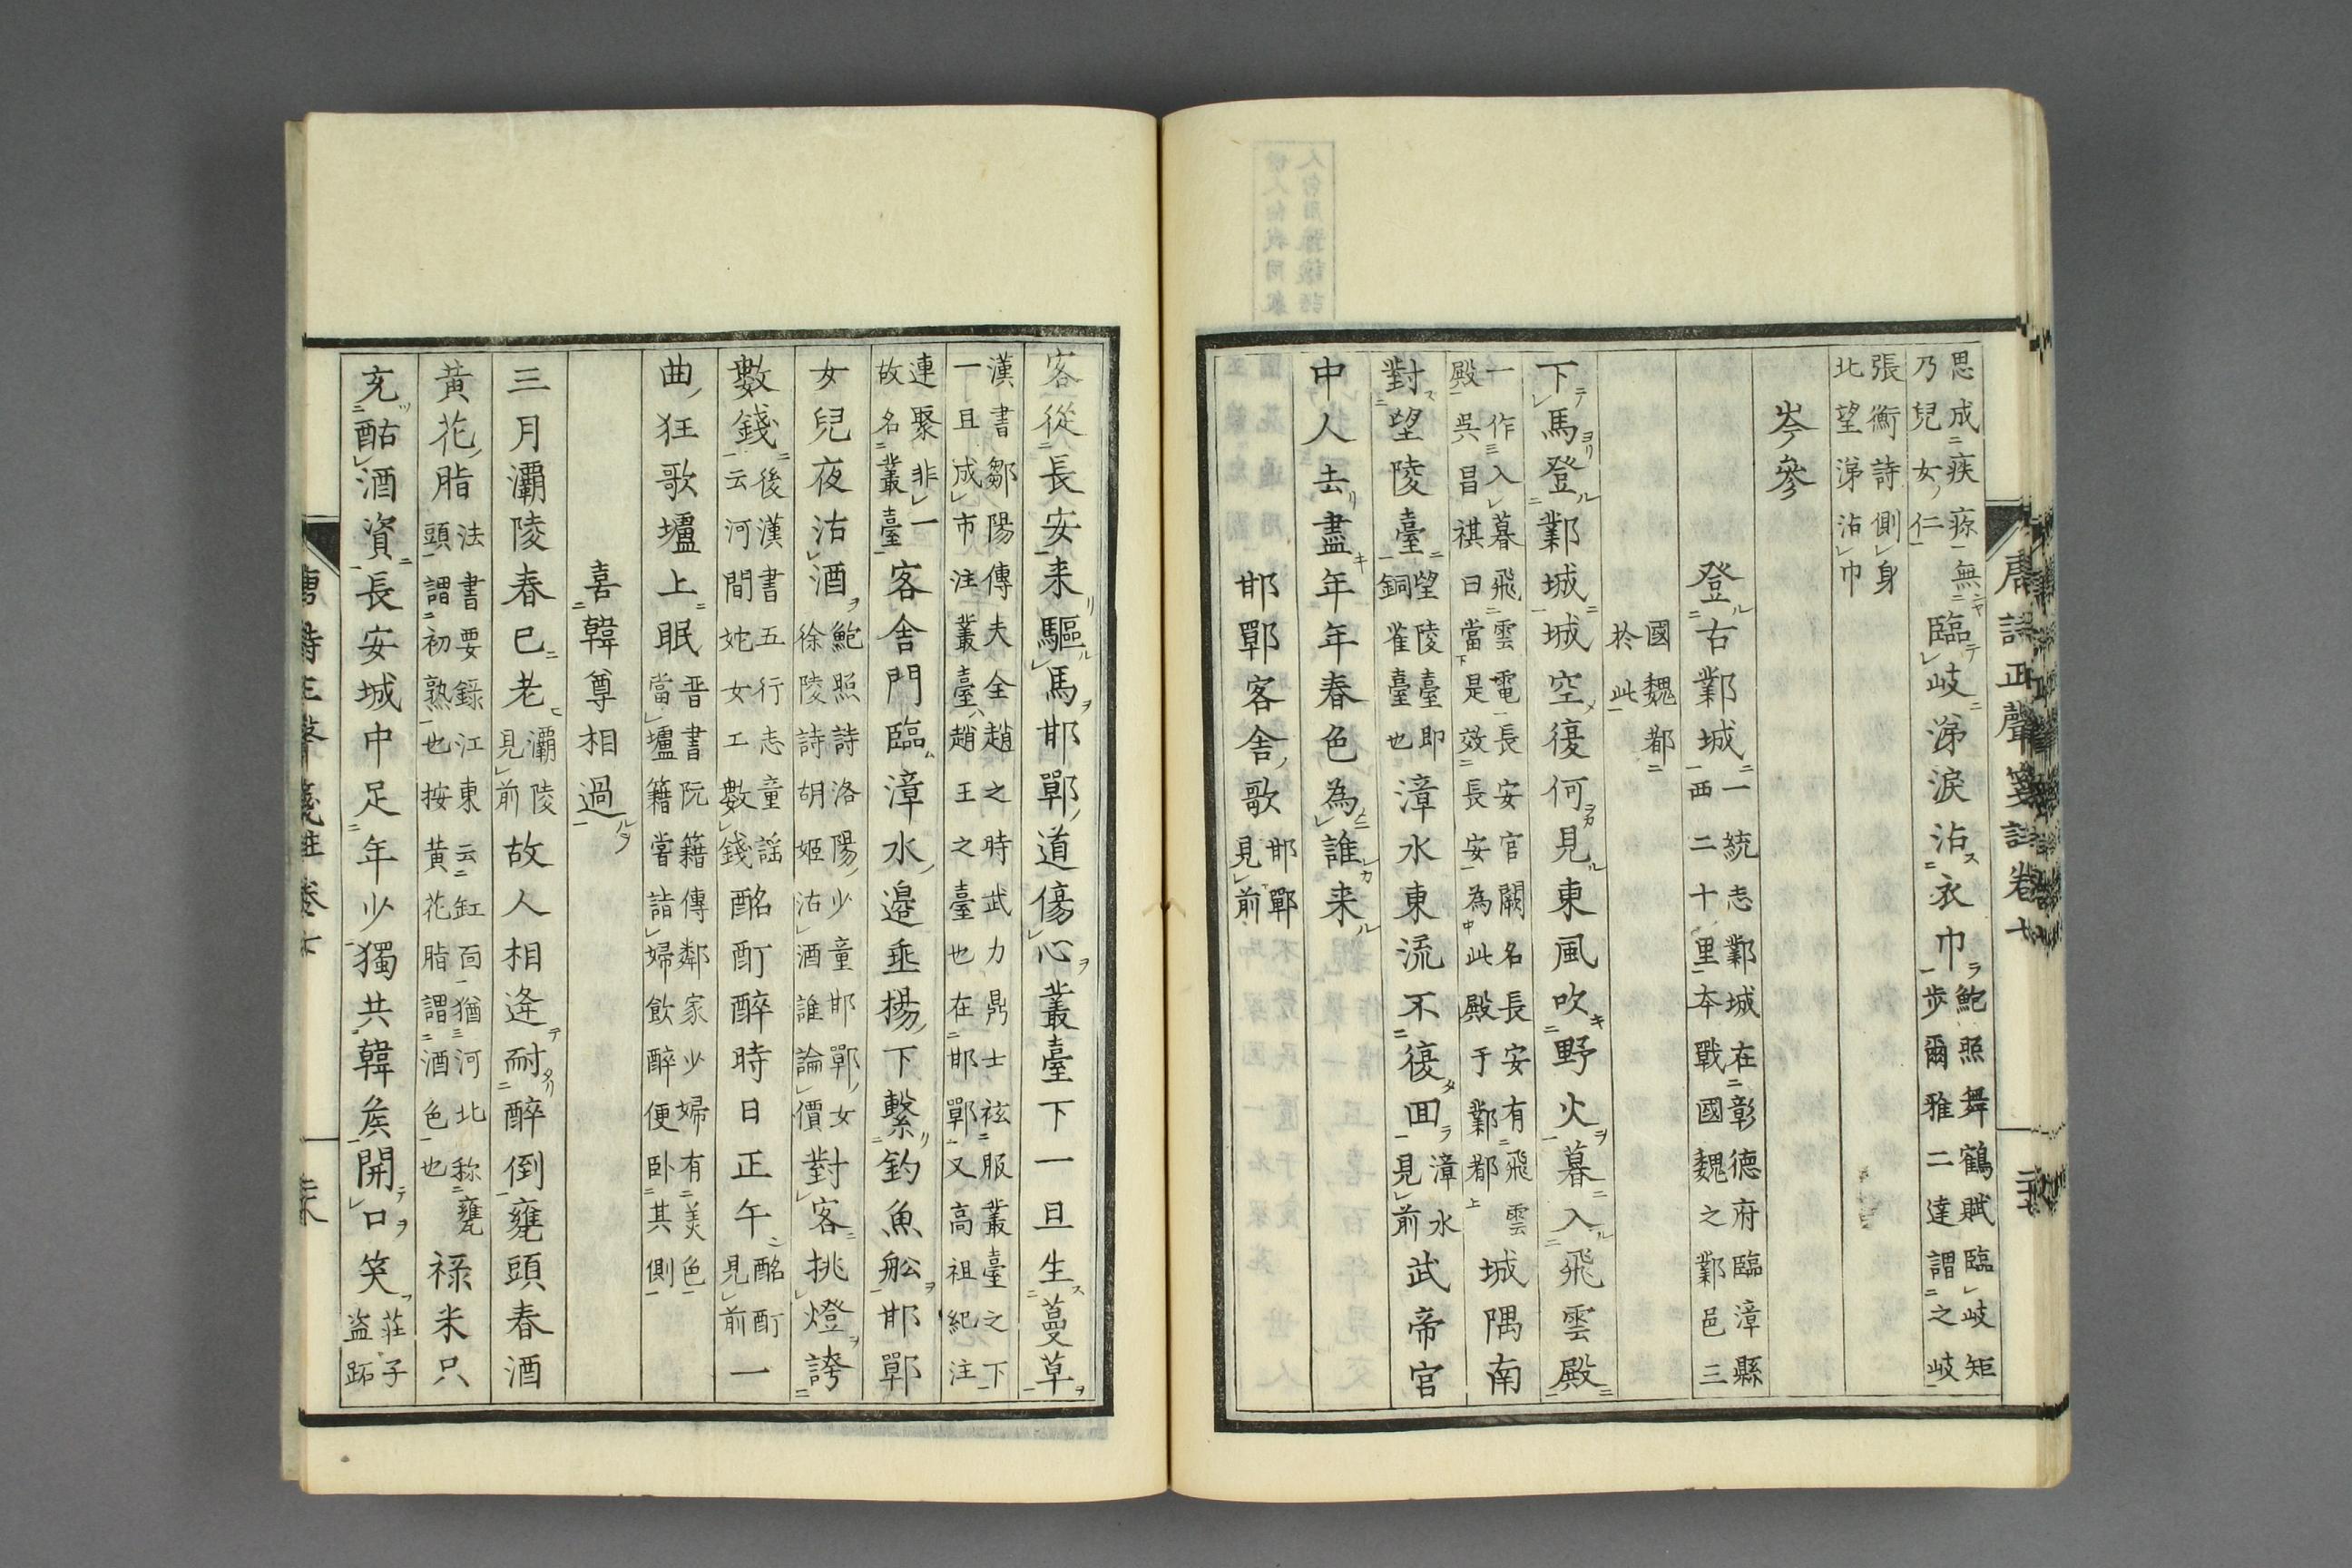 唐詩正聲箋註卷七
思成疾瘵無
乃兒女仁
臨岐涕淚沾衣巾
鮑照舞鶴賦臨岐矩
步爾雅二達謂之岐
張衡詩側身
北望涕沾巾
岑參
登古鄴城
一統志鄴城在彰德府臨漳縣
西二十里本戰國魏之鄴邑三
國魏都
於此
下馬登鄴城城空復何見東風吹野火暮入飛雲殿
一作入暮飛雲電長安官闕名長安有飛雲
殿吳昌祺曰當是效長安為此殿于鄴都
城隅南
對望陵臺
望陵臺即
銅雀臺也
漳水東流不復回
漳水
見前
武帝宮
中人去盡年年春色為誰来
邯鄲客舍歌
邯鄲
見前
客從長安来驅馬邯鄲道傷心叢臺下一旦生蔓草
漢書鄒陽傳夫全趙之時武力鼎士袨服叢臺之下
一旦成市注叢臺趙王之臺也在邯鄲又高祖紀注
連聚非一
故名叢臺
客舍門臨漳水邊垂楊下繫釣魚船邯鄲
女兒夜沽酒
鮑照詩洛陽少童邯鄲女
徐陵詩胡姬沽酒誰論價
對客挑燈誇
數錢
後漢書五行志童謡
云河間姹女工數錢
酩酊醉時日正午
酩酊
見前
一
曲狂歌壚上眠
晋書阮籍傳鄰家少婦有美色
當壚籍嘗詣婦飲醉便卧其側
喜韓尊相過
三月灞陵春已老
灞陵
見前
故人相逢耐醉倒甕頭春酒
黃花脂
法書要録江東云缸面猶河北称甕
頭謂初熟也按黄花脂謂酒色也
禄米只
充酤酒資長安城中足年少獨共韓侯開口笑
莊子
盗跖
唐詩正聲箋註卷七